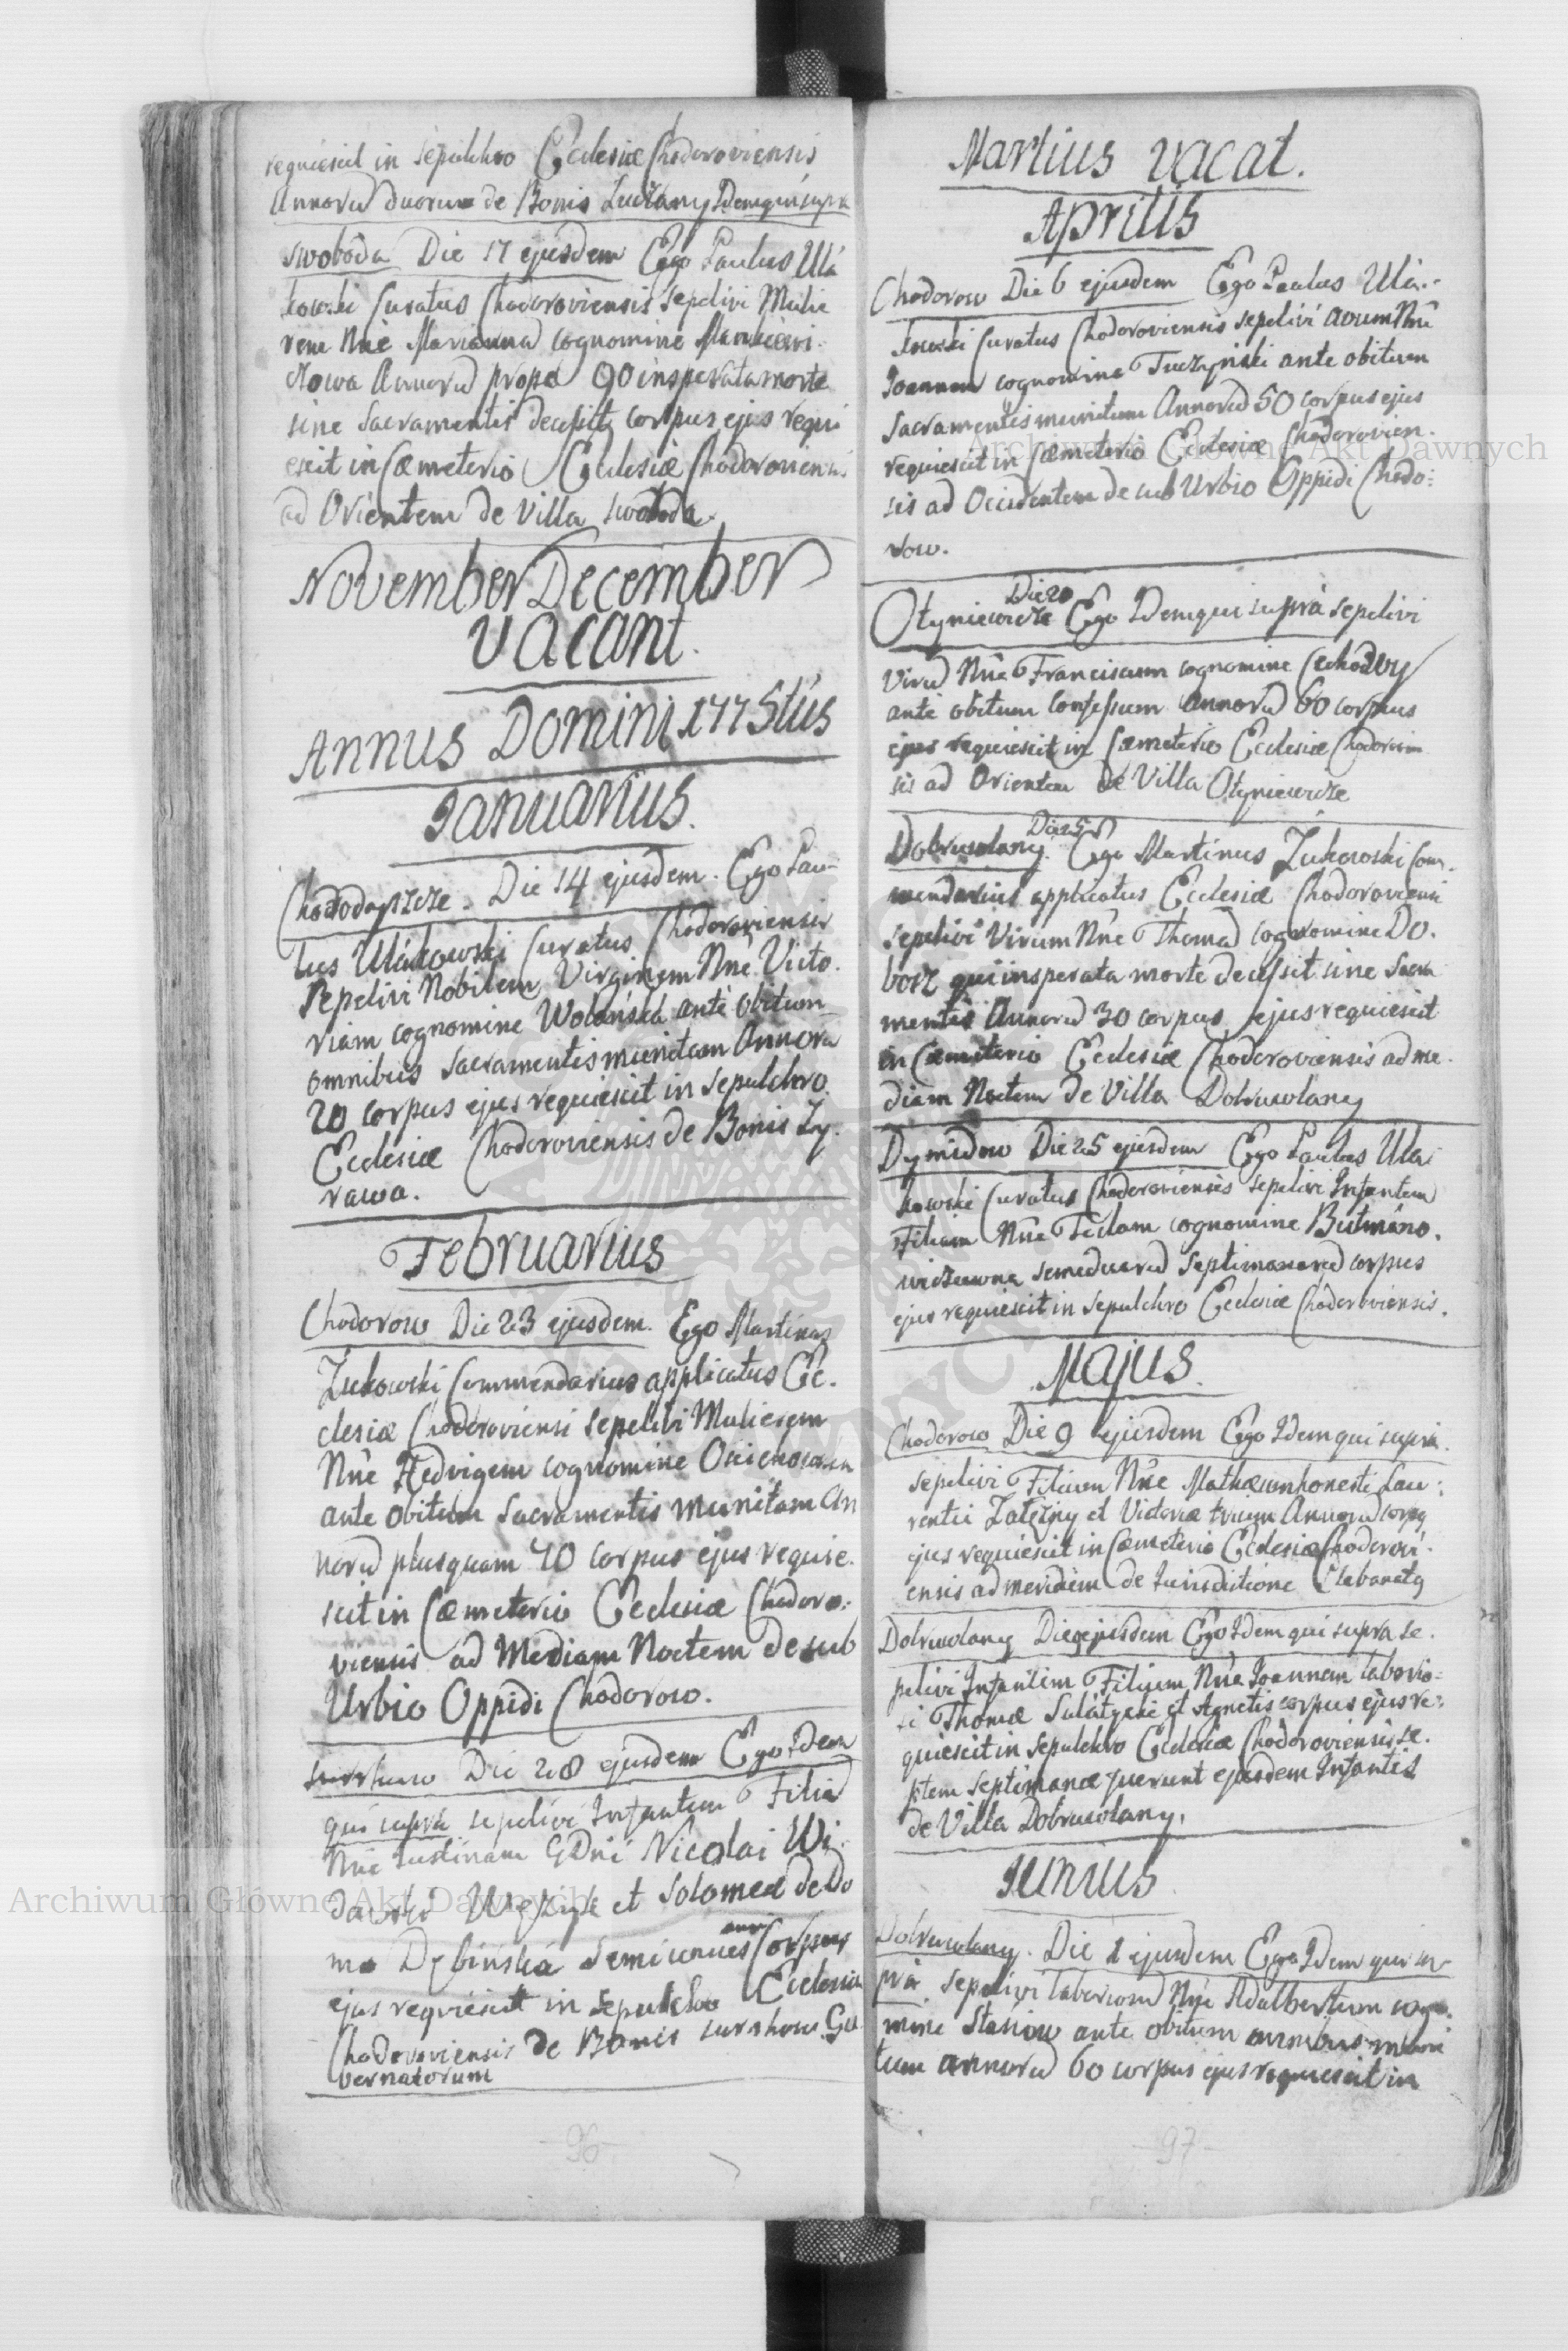 requiescit in sepulchro Ecclesiæ Chodoroviensis
Annorū duorum de Bonis Luczany Idemqui supra
Swoboda Die 17 ejusdem Ego Paulus Ula
kowski Curatus Chodoroviensis sepelivi Mulie
rem Nñe Mariannā cognomine Mankiewi
czowa Annorū prope 90 insperata morte
sine Sacramentis decessit corpus ejus requi
escit in Cœmeterio Ecclesiæ Chodoroviensis
ad Orientem de Villa Swoboda.
November December
vacant.
Annus Domini 1775tus
Januarius.
Die 14 ejusdem. Ego Pau-
lus Ulakowski Curatus Chodoroviensis
Sepelivi Nobilem Virginem Nñe Victo.
riam cognomine Wolańskā ante obitum
omnibus Sacramentis munitam Annorū
20 corpus ejus requiescit in sepulchro
Ecclesiæ Chodoroviensis de Bonis Zy.
rawa.
Februarius
Chodorow Die 23 ejusdem. Ego Martinus
Żukowski Commendarius applicatus Ec.
clesiæ Chodoroviensi sepelivi Mulierem
Nñe Hedvigem cognomine
ante obitum Sacramentis munitam An
norū plusquam 70 corpus ejus requie.
scit in Cœmeterio Ecclesiæ Chodoro:
viensis ad Mediam Noctem de sub
Urbio Oppidi Chodorow.
Die 28 ejusdem Ego Idem
qui supra sepelivi Infantem Filiā
Nñe Justinam GDni Nicolai Wi.
et Salomeæ de Do
mo Dębińska Corpus
ejus requiescit in Sepulchro Ecclesiæ
Chodoroviensis de Bonis Gu
bernatorum
96
Martius vacat.
Aprilis
Chodorow Die 6 ejusdem Ego Paulus Ula-
kowski Curatus Chodoroviensis sepelivi Nñe
Joannem cognomine Tuczyński ante obitum
Sacramentis munitum Annorū 50 corpus ejus
requiescit in Cœmeterio Ecclesiæ Chodorovien.
sis ad Occidentem de sub Urbio Oppidi Chodo:
row.
Die 20
Otyniewicze Ego Idemqui supra sepelivi
Virū Nñe Franciscum cognomine
ante obitum confessum Annorū 60 corpus
ejus requiescit in Cœmeterio Ecclesiæ Chodorovien
sis ad Orientem de Villa Otyniewicze
Die 25
Dobrowlany. Ego Martinus Żukowski Com.
mendarius applicatus Ecclesiæ Chodoroviensi
sepelivi Virum Nñe Thomā cognomine Do.
bosz qui insperata morte decessit sine Sacra
mentis Annorū 30 corpus ejus requiescit
in Cœmeterio Ecclesiæ Chodoroviensis ad me.
diam Noctem de Villa Dobrowlany
Dymidow Die 25 ejusdem Ego Paulus Ula
kowski Curatus Chodoroviensis sepelivi Infantem
Filiam Nñe Teclam cognomine Butmano.
wiczowna septimanarū corpus
ejus requiescit in sepulchro Ecclesiæ Chodoroviensis.
Majus.
Chodorow Die 9 ejusdem Ego Idem qui supra.
sepelivi Filium Nñe Mathæum honesti Lau:
rentii Zalężny et Victoriæ trium Annorū corpq
ejus requiescit in Cœmeterio Ecclesiæ Chodorovi.
ensis ad meridiem de Jurisdictione
Dobrowlany Die ejusdem Ego Idem qui supra se.
pelivi Infantem Filium Nñe Joannem laborio:
si Thomæ et Agnetis corpus ejus re:
quiescit in Sepulchro Ecclesiæ Chodoroviensis se.
ptem septimanæ fuerunt ejusdem Infantis
de Villa Dobrowlany.
Junius
Dobrowlany. Die 1 ejusdem Ego Idem qui su
pra. sepelivi laboriosū Nñe Adalbertum cogno.
mine Stasiow ante obitum omnibus muni
tum annorū 60 corpus ejus requiescit in
97
Archiwum Główne Akt Dawnych
Archiwum Główne Akt Dawnych